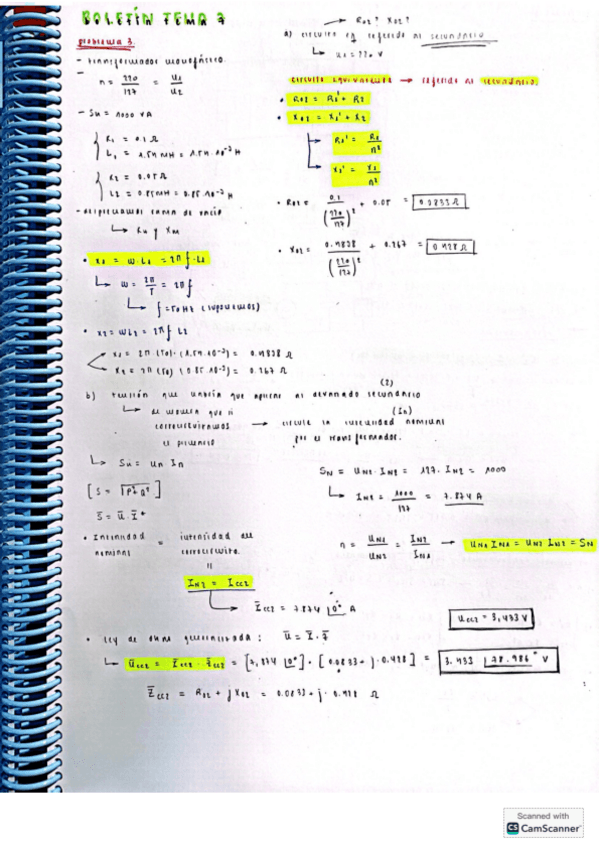 BOLETÍN TEMA 7
problema 3.
- transformador monofásico.
- n = 220/127 = U1/U2
- Sn = 1000 VA
R1 = 0.1 Ω
L1 = 1.54 mH = 1.54 · 10⁻³ H
R2 = 0.05 Ω
L2 = 0.85 mH = 0.85 · 10⁻³ H
- despreciamos rama de vacío
↳ Ru y Xm
• X1 = w · L1 = 2π f · L1
↳ w = 2π/T = 2π f
↳ f = 50 Hz (suponemos)
• X2 = w L2 = 2π f L2
X1 = 2π (50) · (1.54 · 10⁻³) = 0.4838 Ω
X2 = 2π (50) (0.85 · 10⁻³) = 0.267 Ω
→ R02? X02?
a) circuito eq referido al secundario
↳ U1 = 220 V
circuito equivalente → referido al secundario.
• R02 = R1' + R2
• X02 = X1' + X2
↳ R1' = R1/n²
↳ X1' = X1/n²
• R02 = 0.1/(220/127)² + 0.05 = 0.0833 Ω
• X02 = 0.4838/(220/127)² + 0.267 = 0.428 Ω
b) tensión que habría que aplicar al devanado secundario (2)
↳ de manera que si cortocircuitamos el primario → circule la intensidad nominal (In) por el transformador.
↳ Sn = Un In
[S = √P²+Q²]
S̄ = Ū · Ī*
SN = UN2 · IN2 = 127 · IN2 = 1000
↳ IN2 = 1000/127 = 7.874 A
• Intensidad nominal = intensidad del cortocircuito
n = UN1/UN2 = IN2/IN1 → UN1 IN1 = UN2 IN2 = SN
IN2 = Icc2
→ Īcc2 = 7.874 ∠0° A
Ucc2 = 3,433 V
• Ley de ohm generalizada: Ū = Z̄ · Ī
↳ Ūcc2 = Z̄cc2 · Īcc2 = [7,874 ∠0°] · [0.0833 + j · 0.428] = 3.433 ∠78.986° V
Z̄cc2 = R02 + j X02 = 0.0833 + j · 0.428 Ω
Scanned with
CS CamScanner